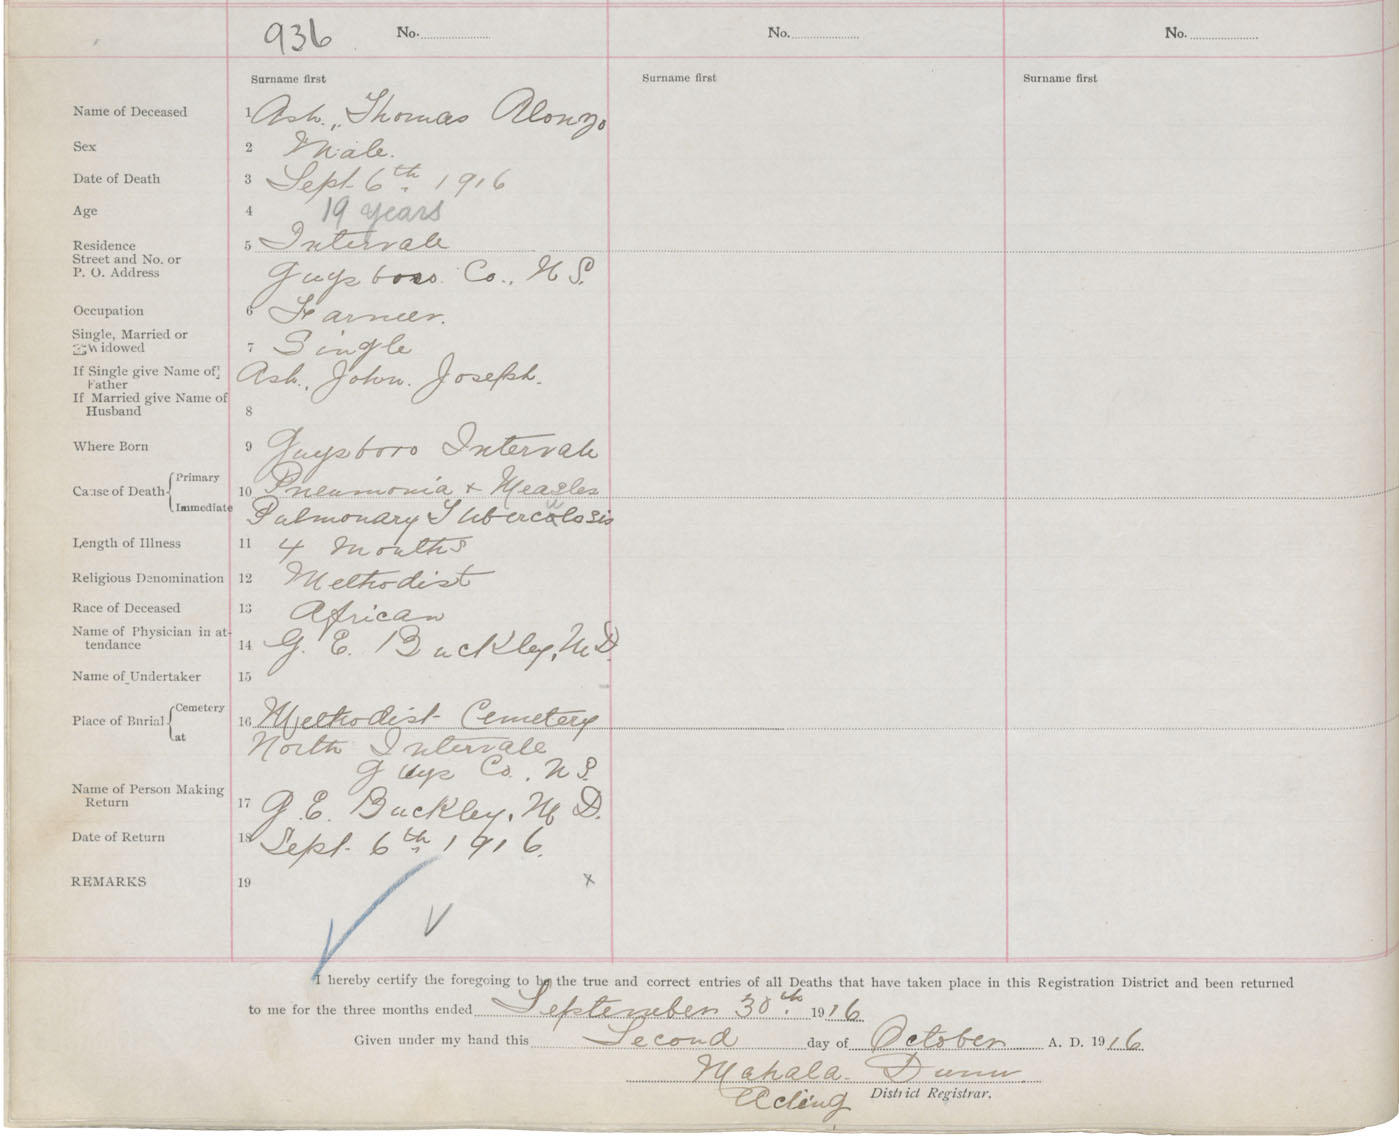 936 No. No. No.
Surname first Surname first Surname first
Name of Deceased 1 Ash., Thomas Alonzo
Sex 2 Male.
Date of Death 3 Sept 6th 1916
Age 4 19 years
Residence 5 Intervale
Street and No. or
P. O. Address Guysboro Co., N S.
Occupation 6 Farmer.
Single, Married or
Widowed 7 Single
If Single give Name of Ash, John. Joseph.
Father
If Married give Name of
Husband 8
Where Born 9 Guysboro Intervale
Primary
Cause of Death 10 Pneumonia + Measles
Immediate Pulmonary Tuberculosis
Length of Illness 11 4 Months
Religious Denomination 12 Methodist
Race of Deceased 13 African
Name of Physician in at-
tendance 14 G. E. Buckley, M D.
Name of Undertaker 15
Cemetery
Place of Burial 16 Methodist Cemetery
at North Intervale
Guys Co., N S.
Name of Person Making
Return 17 G. E. Buckley, M D.
Date of Return 18 Sept. 6th 1916.
REMARKS 19 x
I hereby certify the foregoing to be the true and correct entries of all Deaths that have taken place in this Registration District and been returned
to me for the three months ended September 30th 1916
Given under my hand this Second day of October A. D. 1916
Mahala Dunn
Acting District Registrar.